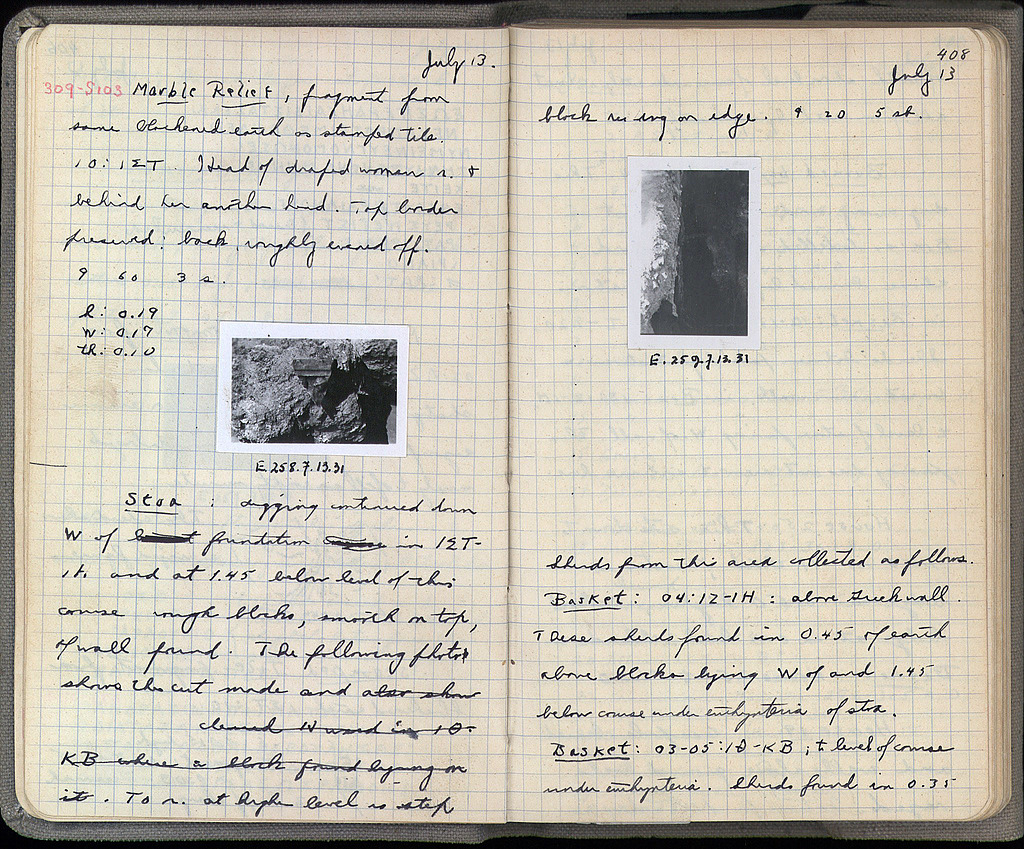 July 13.
309-S103 Marble Relief, fragment from
same blackened earth as stamped tile.
10:1ΣΤ. Head of draped woman r. &
behind her another head. Top border
preserved: back roughly evened off.
9 60 3 s.
l: 0.19
w: 0.17
th: 0.10
E.258.7.13.31
Stoa : digging continued down
W of foundation in 1ΣΤ-
1H. and at 1.45 below level of this
course rough blocks, smooth on top,
of wall found. The following photo
shows the cut made and also show
cleared W ward in 1Θ-
KB where a block found lying on
it. To r. at higher level is step
408
July 13
block on edge. 9 20 5 st.
E.259.7.13.31
Sherds from this area collected as follows.
Basket: 04:1Z-1H : above wall.
These sherds found in 0.45 of earth
above blocks lying W of and 1.45
below course under euthynteria of stoa.
Basket: 03-05:1Θ-KB ; to level of course
under euthynteria. Sherds found in 0.35